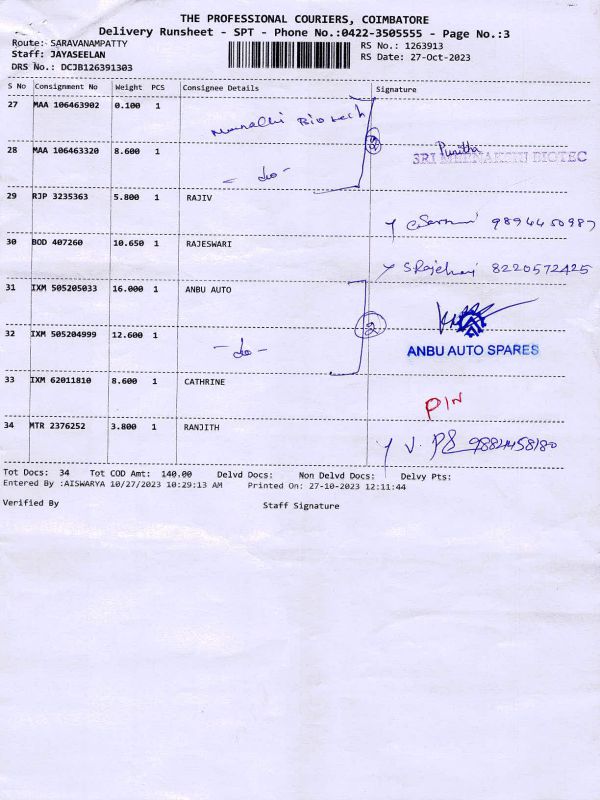 THE PROFESSIONAL COURIERS, COIMBATORE
Delivery Runsheet - SPT - Phone No.:0422-3505555 - Page No.:3
Route: SARAVANAMPATTY
RS No.: 1263913
Staff: JAYASEELAN
RS Date: 27-Oct-2023
DRS No.: DCJB126391303
S No Consignment No Weight PCS Consignee Details Signature
27 MAA 106463902 0.100 1 Biotech
28 MAA 106463320 8.600 1 - do - Punitha
SRI MEENAKSHI BIOTEC
29 RJP 3235363 5.800 1 RAJIV 9894450987
30 BOD 407260 10.650 1 RAJESWARI 8220572425
31 IXM 505205033 16.000 1 ANBU AUTO
32 IXM 505204999 12.600 1 - do -
ANBU AUTO SPARES
33 IXM 62011810 8.600 1 CATHRINE PIN
34 MTR 2376252 3.800 1 RANJITH
Tot Docs: 34 Tot COD Amt: 140.00 Delvd Docs: Non Delvd Docs: Delvy Pts:
Entered By :AISWARYA 10/27/2023 10:29:13 AM Printed On: 27-10-2023 12:11:44
Verified By Staff Signature